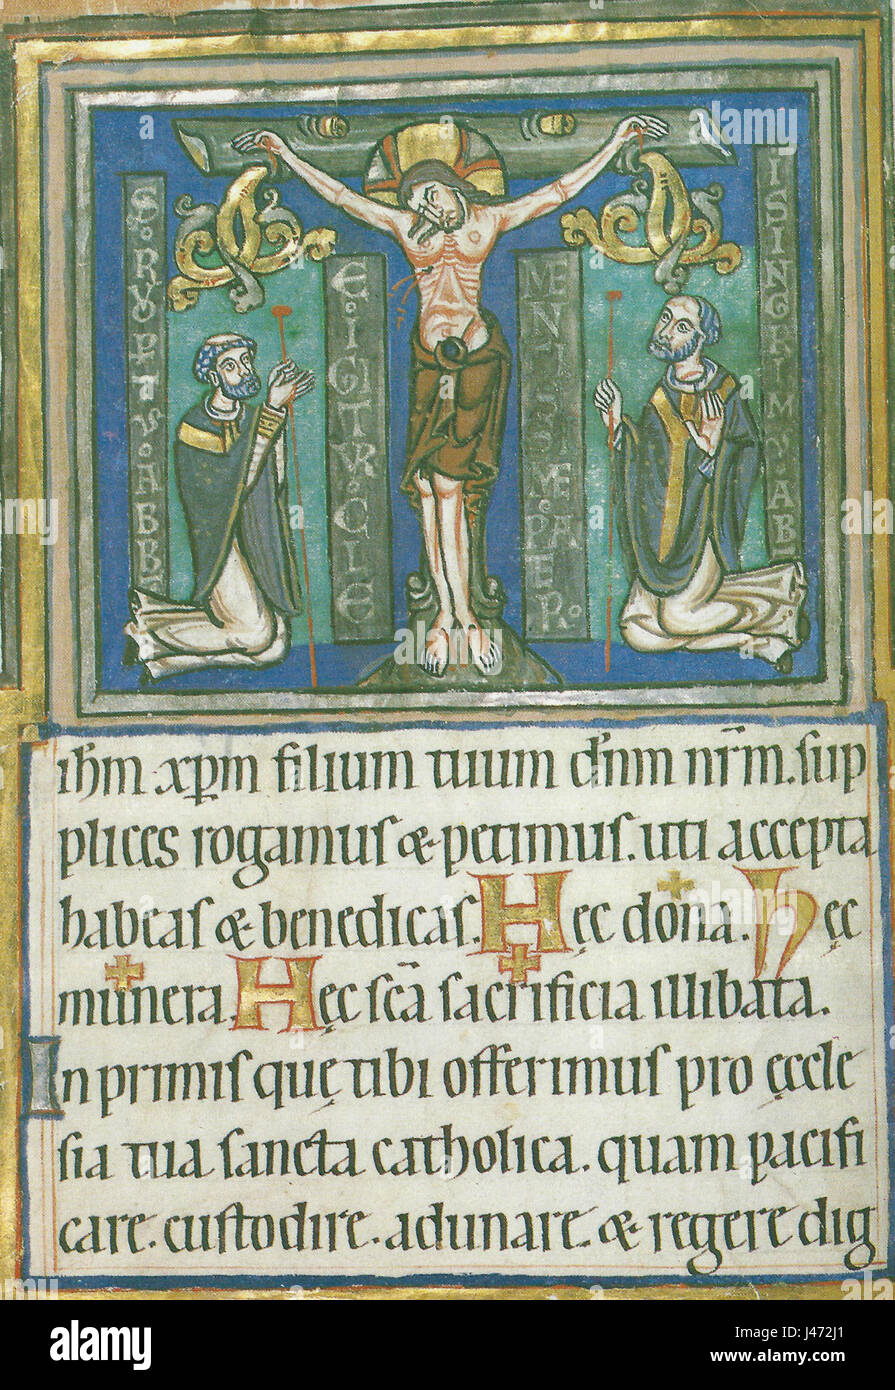 E·IGITVR·CLE
MENTISSIME PATER
ISINGRIMVS·ABB
ihm xpm filium tuum dnm nrm. sup
plices rogamus & petimus. uti accepta
habeas & benedicas. Hęc dona. hęc
munera. Hęc scā sacrificia illibata.
In primis quę tibi offerimus pro ęccle
sia tua sancta catholica. quam pacifi
care. custodire. adunare. & regere dig
alamy
Image ID: J472J1
www.alamy.com